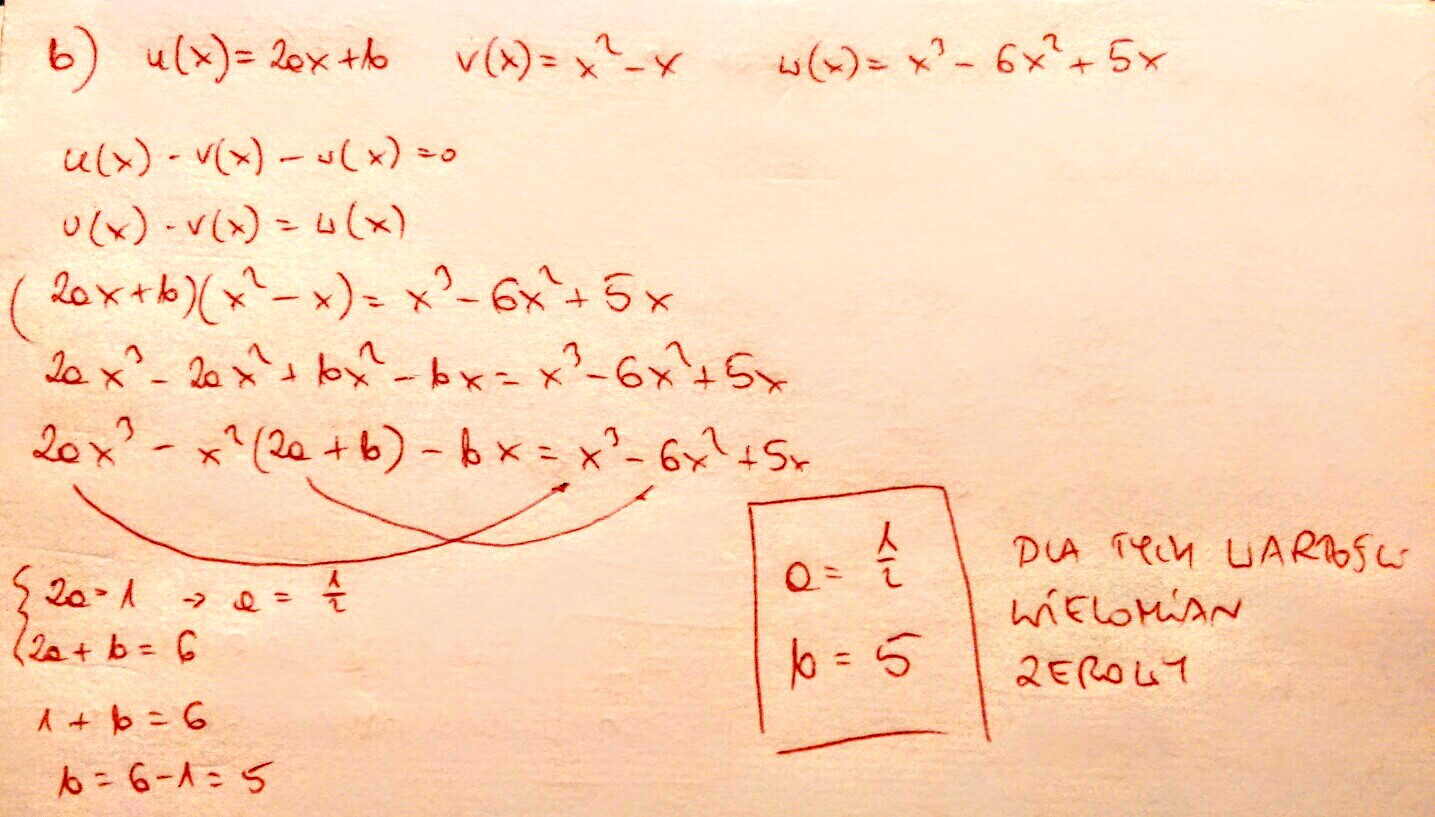 b) u(x)= 2ax+b v(x)= x²-x w(x)= x³- 6x²+ 5x
u(x) · v(x) - w(x) =0
u(x) · v(x) = w(x)
(2ax+b)(x²-x)= x³- 6x²+ 5x
2ax³- 2ax²+ bx²- bx= x³-6x²+5x
2ax³ - x²(2a+b) - bx= x³- 6x²+5x
{2a=1 → a= 1/2
{2a+b= 6
1+b=6
b=6-1=5
a= 1/2
b=5
DLA TYCH WARTOŚCI
WIELOMIAN
ZEROWY